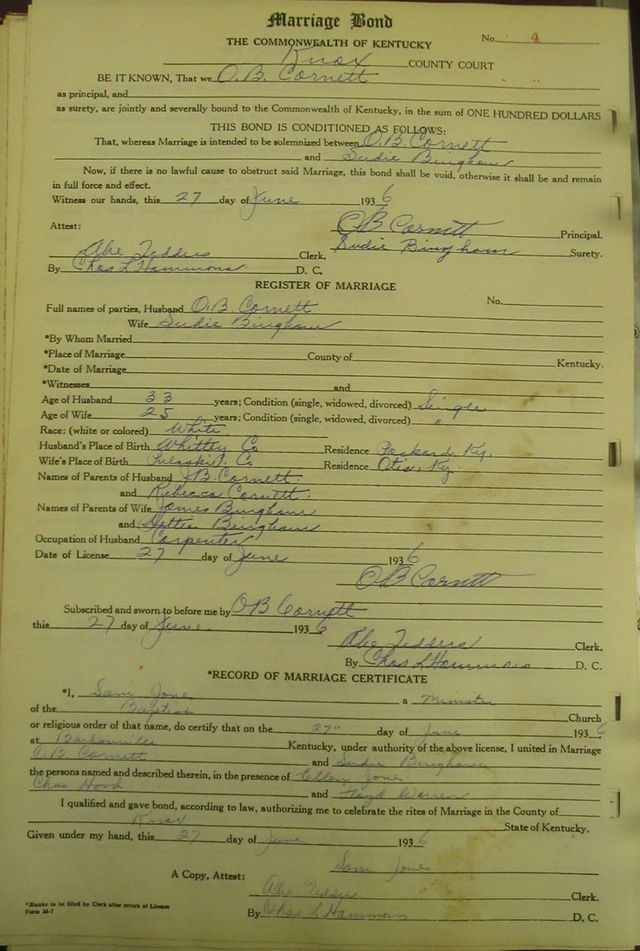 Marriage Bond
No. 4
THE COMMONWEALTH OF KENTUCKY
Knox COUNTY COURT
BE IT KNOWN, That we O. B. Cornett
as principal, and
as surety, are jointly and severally bound to the Commonwealth of Kentucky, in the sum of ONE HUNDRED DOLLARS
THIS BOND IS CONDITIONED AS FOLLOWS:
That, whereas Marriage is intended to be solemnized between O. B. Cornett
and Sudie Bingham
Now, if there is no lawful cause to obstruct said Marriage, this bond shall be void, otherwise it shall be and remain
in full force and effect.
Witness our hands, this 27 day of June 1936
Attest: O B Cornett Principal.
Abe Tedders Clerk. Sudie Bingham Surety.
By Chas L Hammons D. C.
REGISTER OF MARRIAGE
No.
Full names of parties, Husband O. B. Cornett
Wife Sudie Bingham
*By Whom Married
*Place of Marriage County of Kentucky.
*Date of Marriage
*Witnesses and
Age of Husband 33 years; Condition (single, widowed, divorced) Single
Age of Wife 25 years; Condition (single, widowed, divorced) "
Race: (white or colored) White
Husband's Place of Birth Whitley Co Residence Packard Ky.
Wife's Place of Birth Pulaski Co Residence Otis, Ky.
Names of Parents of Husband J B Cornett
and Rebecca Cornett
Names of Parents of Wife James Bingham
and Bingham
Occupation of Husband Carpenter
Date of License 27 day of June 1936
O B Cornett
Subscribed and sworn to before me by O B Cornett
this 27 day of June 1936
Abe Tedders Clerk.
By Chas L Hammons D. C.
*RECORD OF MARRIAGE CERTIFICATE
*I, Sam Jones a Minister
of the Baptist Church
or religious order of that name, do certify that on the 27" day of June 1936
at Barbourville Kentucky, under authority of the above license, I united in Marriage
O. B. Cornett and Sudie Bingham
the persons named and described therein, in the presence of Ellen Jones
Chas Hood and Floyd Warren
I qualified and gave bond, according to law, authorizing me to celebrate the rites of Marriage in the County of
Knox State of Kentucky.
Given under my hand, this 27 day of June 1936
Sam Jones
A Copy, Attest:
Abe Tedders Clerk.
*Blanks to be filled by Clerk after return of License
Form M-7
By Chas L Hammons D. C.